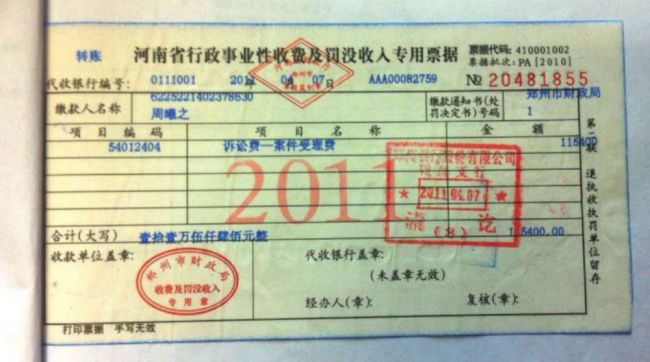 转账 河南省行政事业性收费及罚没收入专用票据 票据代码: 410001002
票据批次: PA [2010]
代收银行编号: 0111001 2011年 04 07日 AAA00082759 № 20481855
6225221402378630 郑州市财政局
缴款人名称 周曦之 缴款通知书(处罚决定书)号码 1
项目编码 项目名称 金额
54012404 诉讼费—案件受理费 115400
2011
2011.04.07
讫
(8)
合计(大写) 壹拾壹万伍仟肆佰元整 115400.00
收款单位盖章: 代收银行盖章:
郑州市财政局
收费及罚没收入
专用章
(未盖章无效)
经办人(章): 复核(章):
打印票据 手写无效
第二联 退执收执罚单位留存